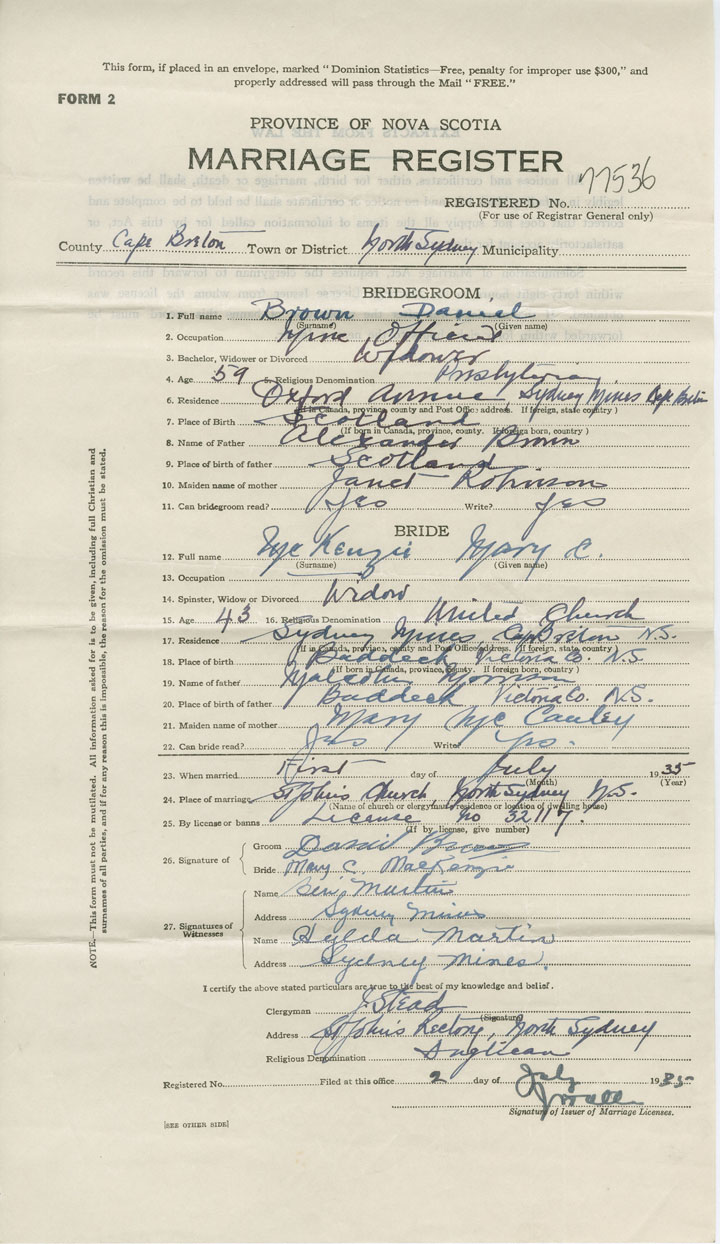 This form, if placed in an envelope, marked " Dominion Statistics—Free, penalty for improper use $300," and
properly addressed will pass through the Mail " FREE."
FORM 2
PROVINCE OF NOVA SCOTIA
MARRIAGE REGISTER
77536
REGISTERED No.
(For use of Registrar General only)
County Cape Breton Town or District North Sydney Municipality
BRIDEGROOM
1. Full name Brown Daniel
(Surname) (Given name)
2. Occupation Mine Official
3. Bachelor, Widower or Divorced Widower
4. Age 59 5. Religious Denomination Presbyterian
6. Residence Oxford Avenue, Sydney Mines Cape Breton
(If in Canada, province, county and Post Office address. If foreign, state country )
7. Place of Birth Scotland
(If born in Canada, province, county. If foreign born, country )
8. Name of Father Alexander Brown
9. Place of birth of father Scotland
10. Maiden name of mother Janet Robinson
11. Can bridegroom read? Yes Write? Yes
BRIDE
12. Full name McKenzie Mary C.
(Surname) (Given name)
13. Occupation
14. Spinster, Widow or Divorced Widow
15. Age 43 16. Religious Denomination United Church
17. Residence Sydney Mines, Cape Breton N.S.
(If in Canada, province, county and Post Office address. If foreign, state country)
18. Place of birth Baddeck Victoria Co. N.S.
(If born in Canada, province, county. If foreign born, country )
19. Name of father Malcolm Morrison
20. Place of birth of father Baddeck Victoria Co. N.S.
21. Maiden name of mother Mary McCauley
22. Can bride read? Yes Write? Yes.
23. When married First day of July 1935
(Month) (Year)
24. Place of marriage St John's Church North Sydney N.S.
(Name of church or clergyman's residence or location of dwelling house)
25. By license or banns License no 32117.
(If by license, give number)
26. Signature of
Groom Daniel Brown
Bride Mary C. MacKenzie
27. Signatures of Witnesses
Name Martin
Address Sydney Mines
Name Hylda Martin
Address Sydney Mines.
I certify the above stated particulars are true to the best of my knowledge and belief.
Clergyman J. Stead
(Signature)
Address St John's Rectory, North Sydney
Religious Denomination Anglican
Registered No. Filed at this office 2 day of July 1935
Signature of Issuer of Marriage Licenses.
[SEE OTHER SIDE]
NOTE.—This form must not be mutilated. All information asked for is to be given, including full Christian and
surnames of all parties, and if for any reason this is impossible, the reason for the omission must be stated.